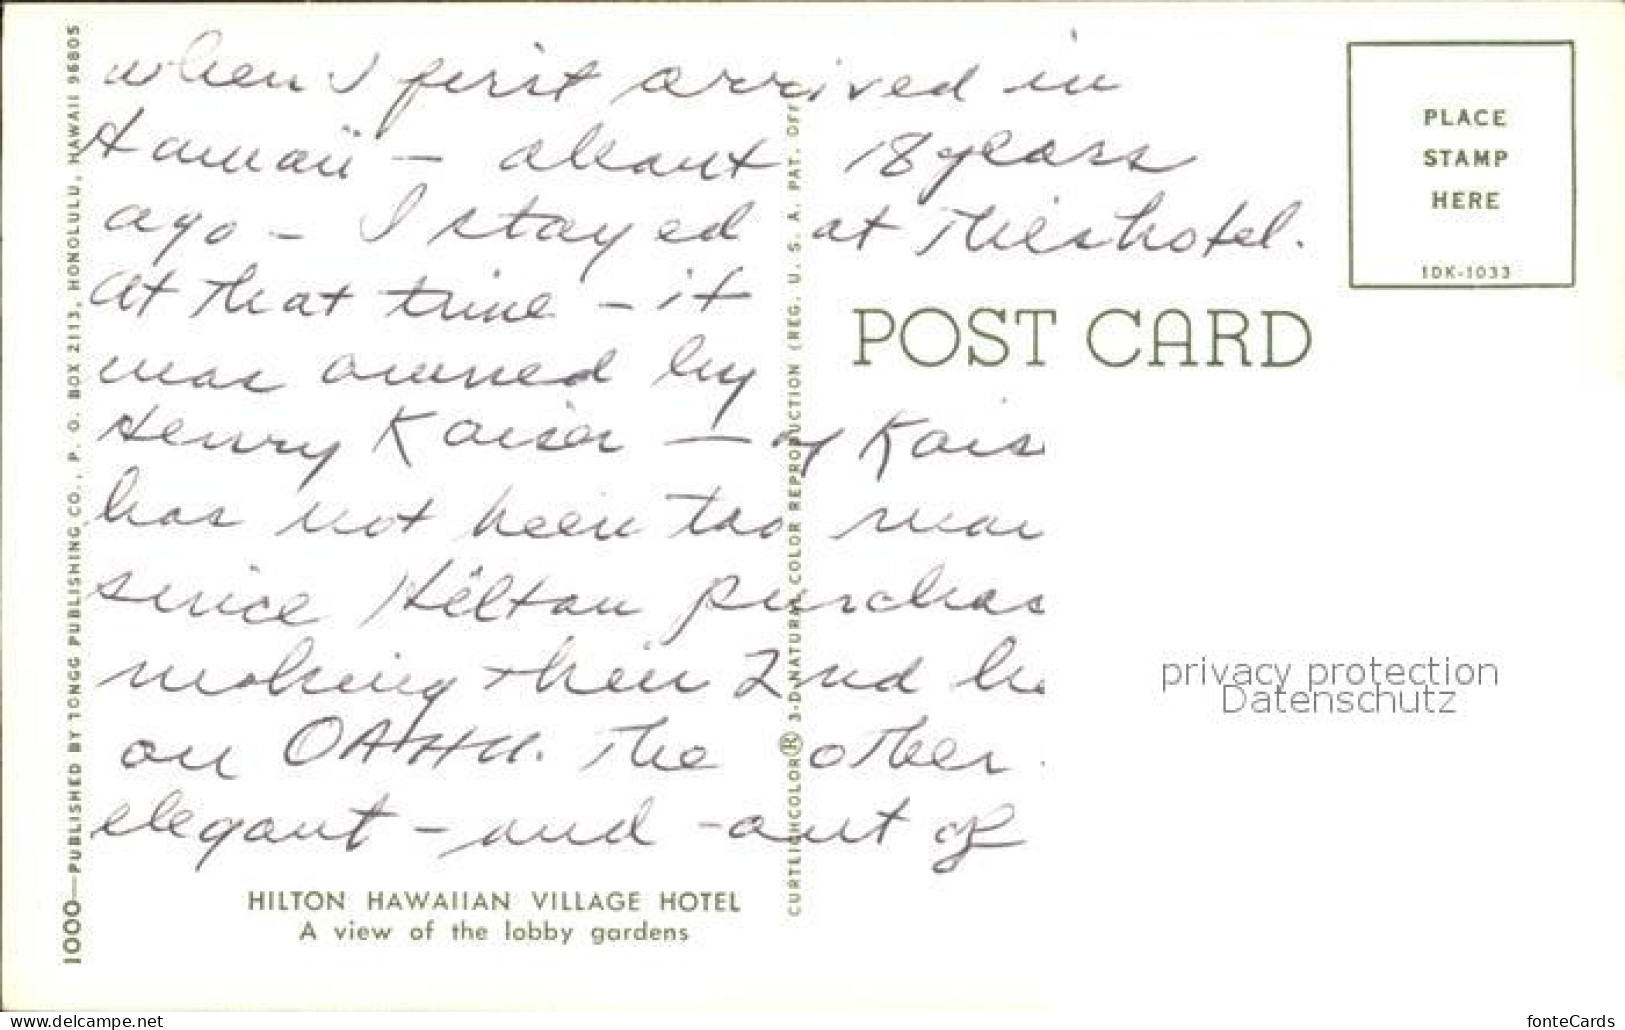 when I first arrived in
Hawaii - about 18 years
ago - I stayed at this hotel.
At that time - it
was owned by
Henry Kaiser - Kais
has not been too
since Hilton purchas
making their 2nd
on OAHU. The other
elegant - and - out of
HILTON HAWAIIAN VILLAGE HOTEL
A view of the lobby gardens
1000—PUBLISHED BY TONGG PUBLISHING CO., P. O. BOX 2113, HONOLULU, HAWAII 96805
CURTEICHCOLOR® 3-D NATURAL COLOR REPRODUCTION (REG. U. S. A. PAT. OFF
POST CARD
PLACE
STAMP
HERE
1DK-1033
privacy protection
Datenschutz
www.delcampe.net
fonteCards